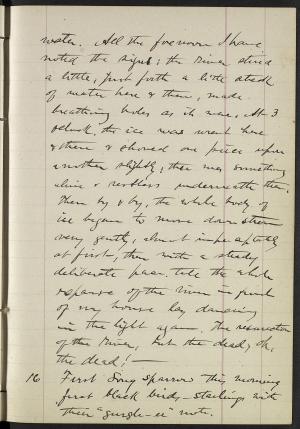 water. All the forenoon I have
noted the signs; the River stired
a little, put forth a little
of water here & there, made
breathing holes as it were. At 3
oclock, the ice was rent here
& there & shoved one piece upon
another slightly; there was something
alive & restless underneath there.
Then by & by, the whole body of
ice began to move down stream
very gently, almost imperceptibly
at first, then with a steady
deliberate pace till the whole
expanse of the river in front
of my house lay dancing
in the light again. The resurrection
of the River, but the dead, oh,
the dead! —
16 First Song sparrow this morning
first black birds, starlings with
their "gurgle-ee" note.